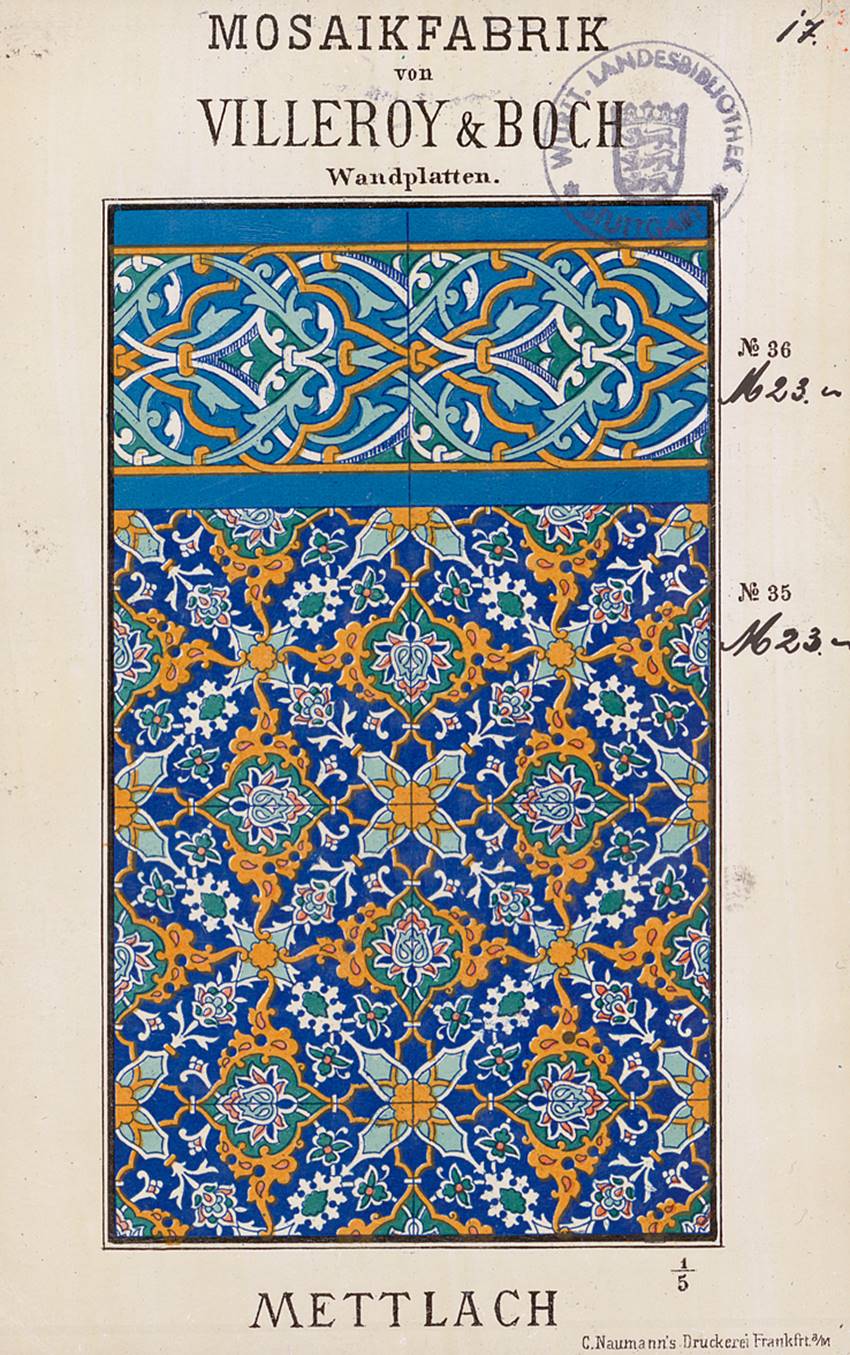 MOSAIKFABRIK
17.
von
VILLEROY & BOCH
Wandplatten.
WÜRTT. LANDESBIBLIOTHEK
STUTTGART
№ 36
M 23.
№ 35
M 23.
1/5
METTLACH
C. Naumann's Druckerei Frankfrt. a/M